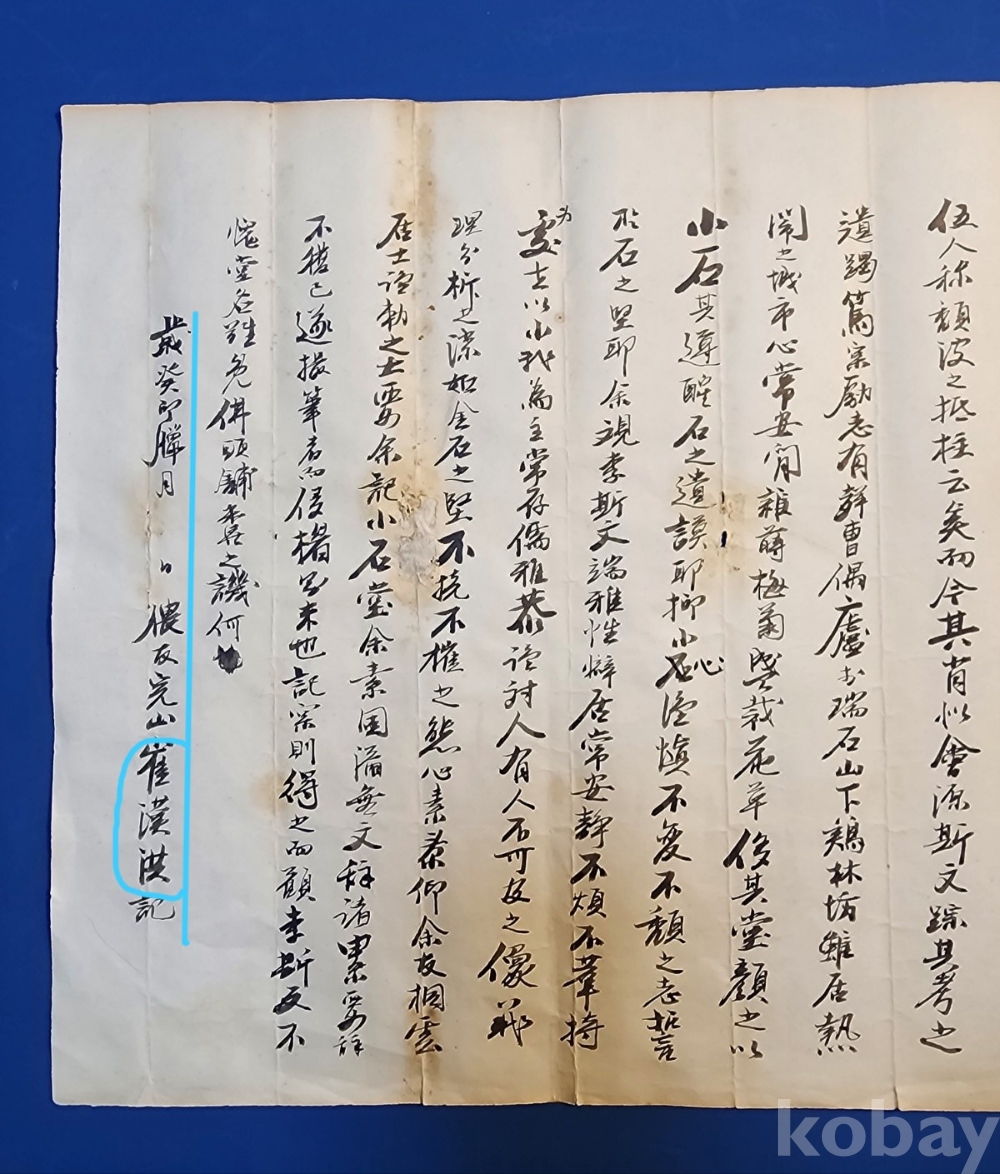 伍人称頹波之抵柱云矣而今其肖似會源斯文踪其考之
遺躅篤宗勵志有辭曹偶廬於瑞石山下鷄林坊雖居熱
鬧之城市心常安閒雜蒔梅菊學栽花草 侈其堂顏之以
小石其遵醒石之遺謨耶抑小心謹愼不變不頹之志誓
於石之堅耶余視李斯文端雅性癖居常安靜不煩不葷持
爲處士以小我為主常存儒雅恭謹討人有人不可友之像
理分析之深如金石之堅不撓不摧之態心素恭仰余友桐雲
居士謹勅之士要余記小石堂余素固陋無文辞諸累要辞
不穫已遂援筆言而侈楣曰未也記宗則得之而顧李斯文不
堂名難免佛頭鋪糞之譏何
歲癸卯臘月 日 穠友完山崔漢洪記
kobay